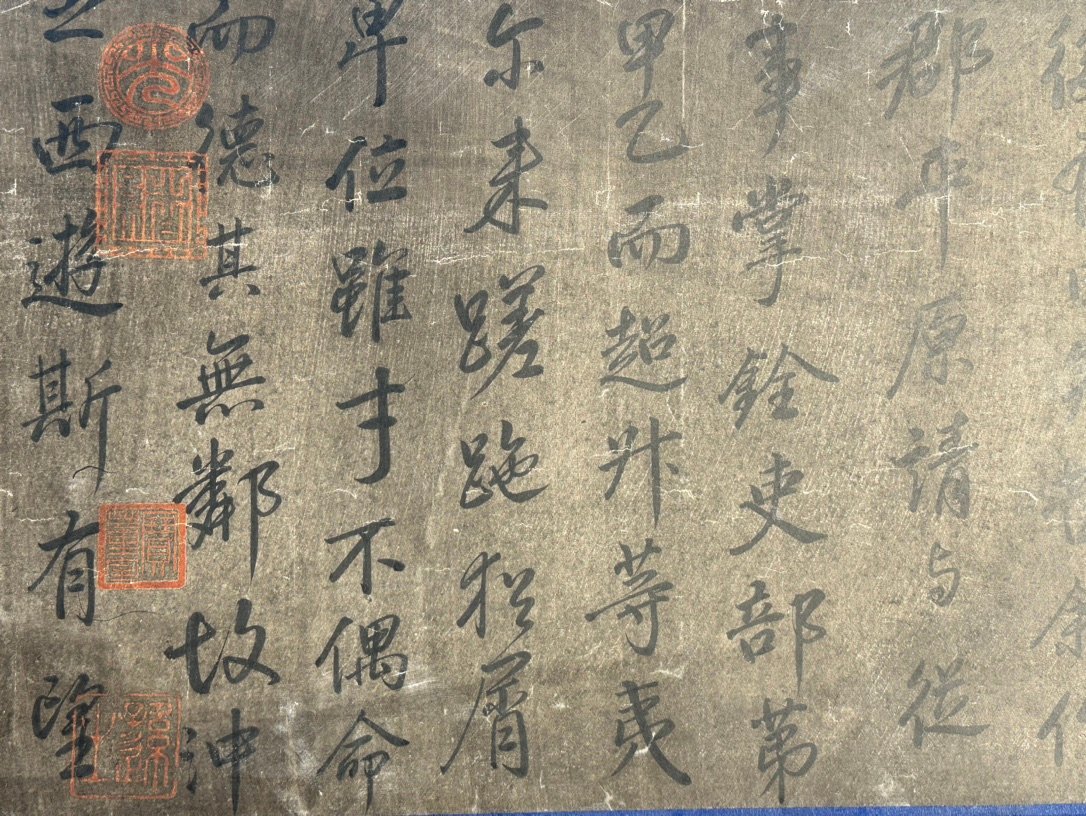 余作
郡平原請与從
事掌銓吏部第
甲乙而超升等夷
尔来蹉跎猶屑
卑位雖才不偶命
而德其無鄰故沖
之西遊斯有望